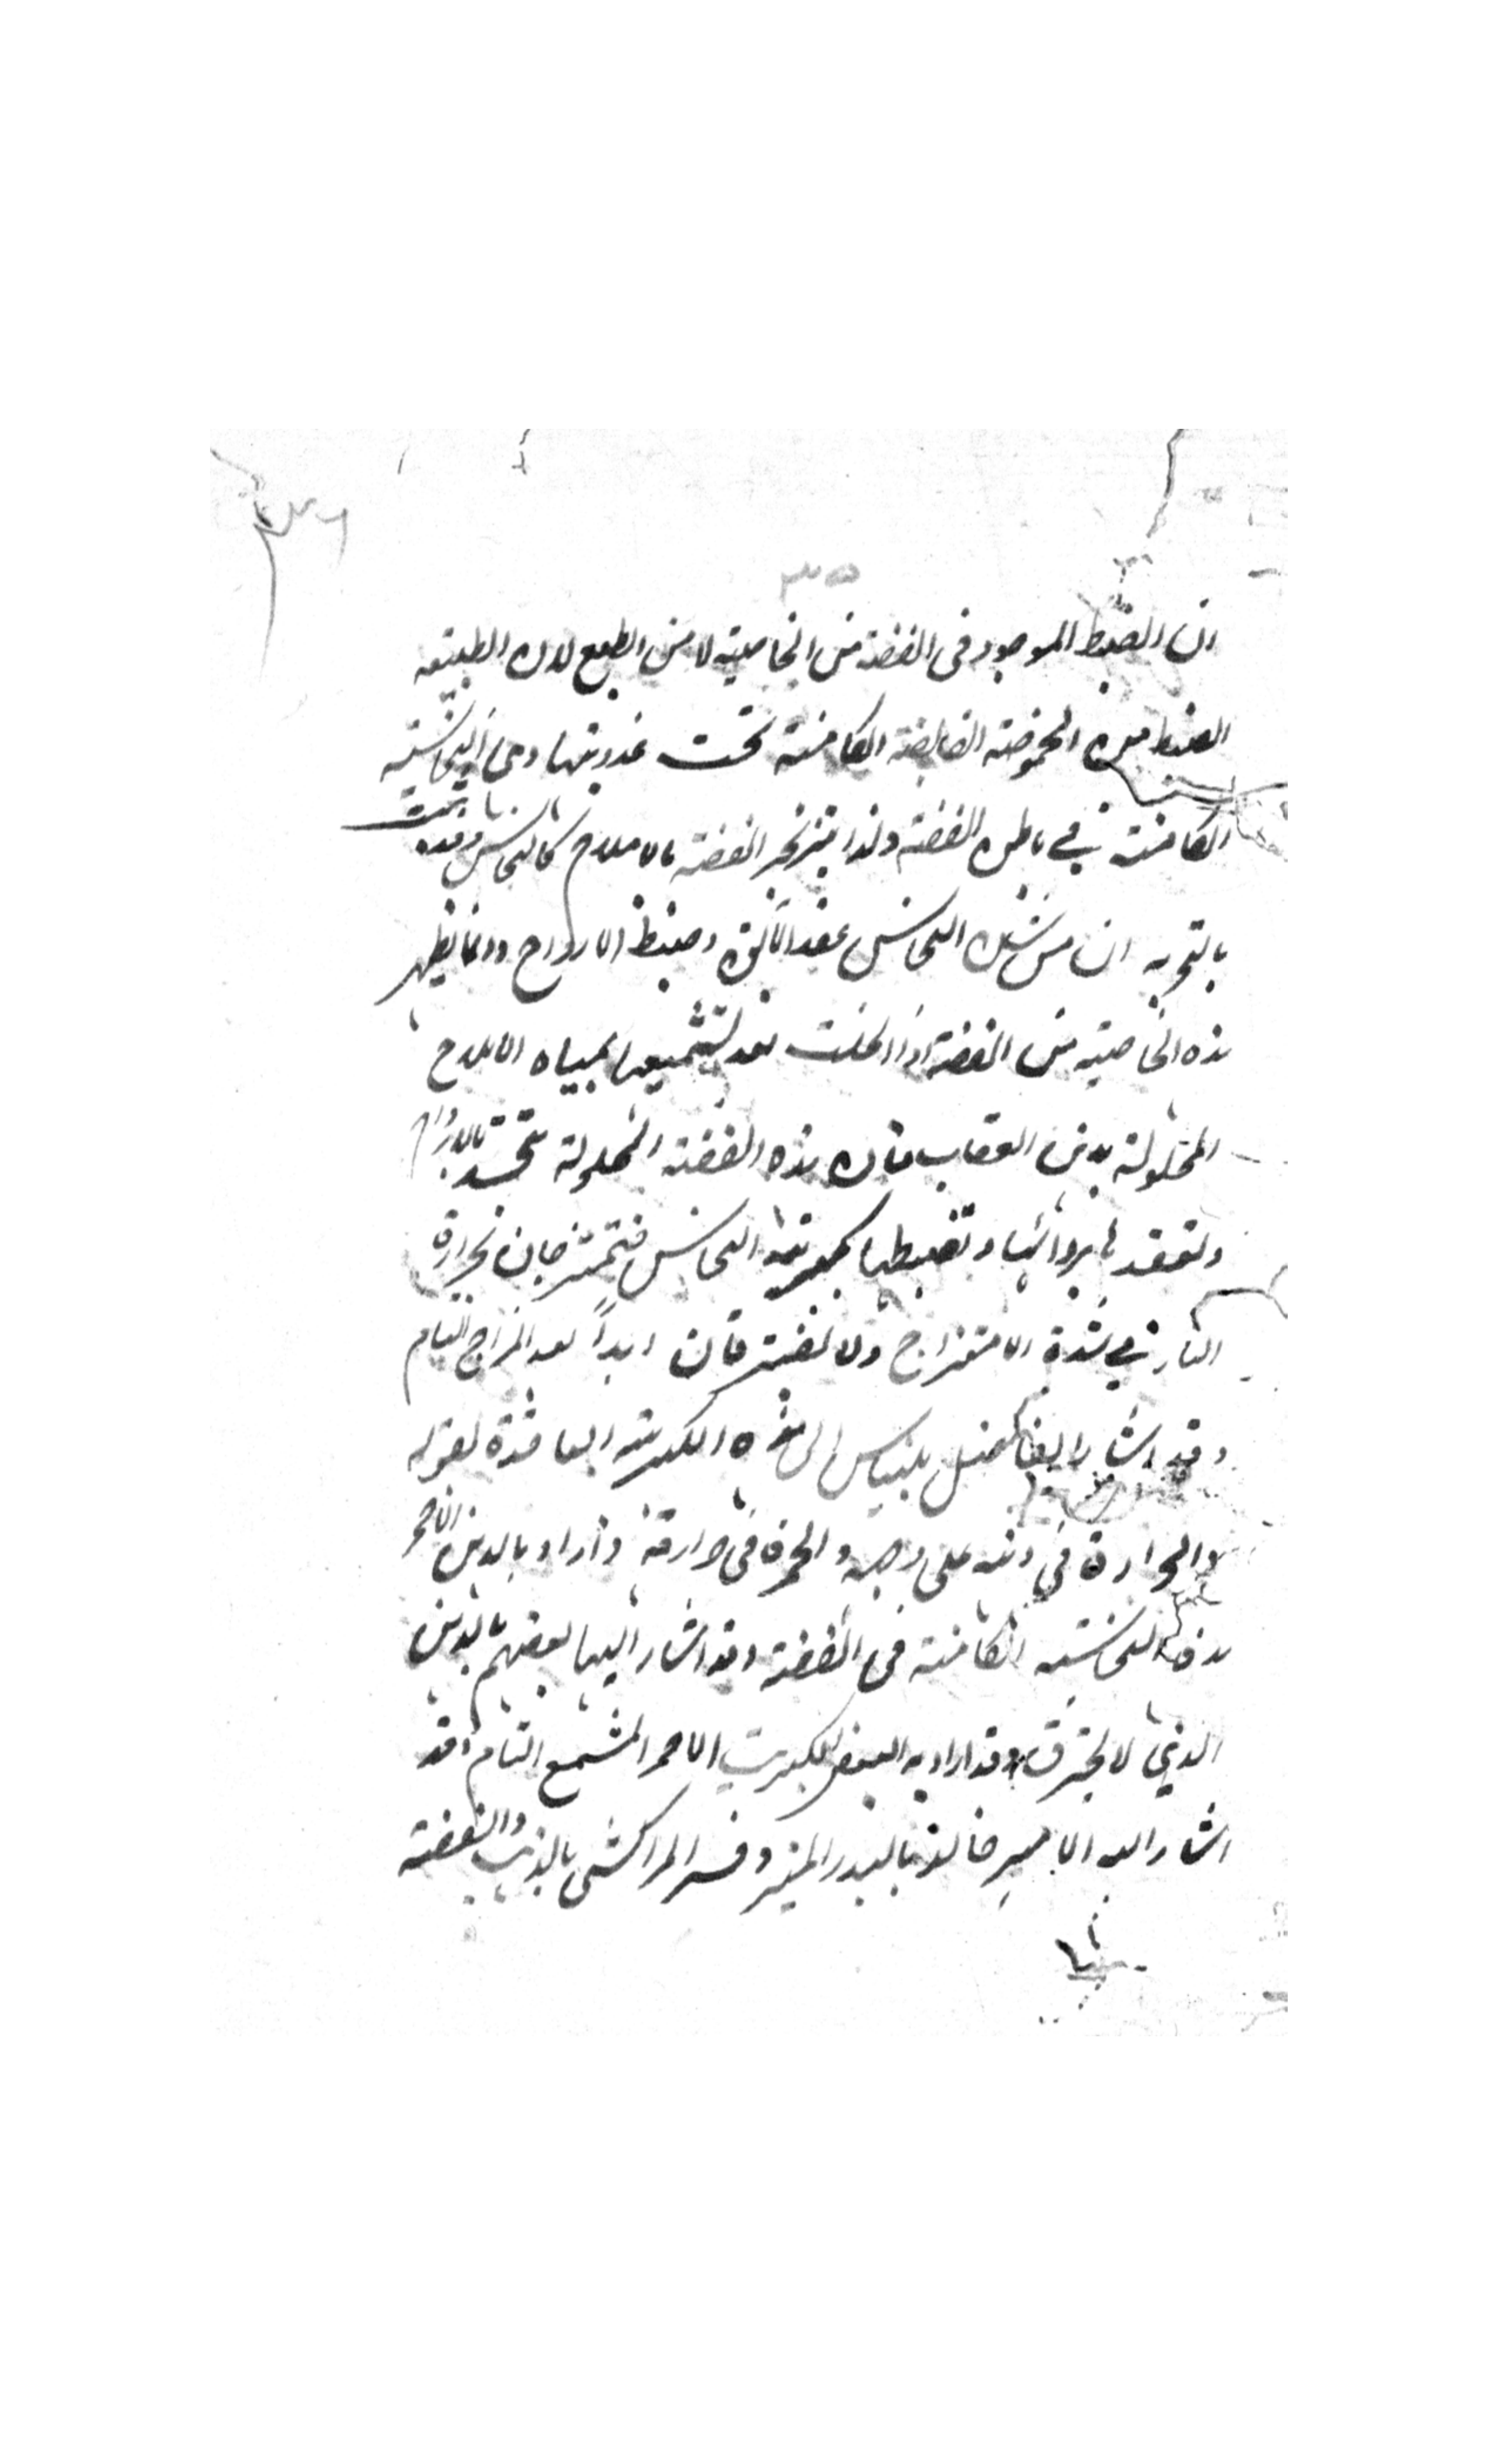 ٣٥
ان الضبط الموجود فى الفضة من الخاصية لا من الطبع لان الطبيعه
الكامنة تحت عذوبتها وهى النحاسية
الكامنة في باطن الفضة ولذا يتزنجر الفضة بالاملاح كالنحاس وقد ثبت
بالتجربه ان من شان النحاس عقد الآبق وضبط الارواح وانما يظهر
هذه الخاصية من الفضة اذا انحلت بعد تشميعها بمياه الاملاح
المحلولة بدهن العقاب فان هذه الفضة المحلولة تتحد بالارواح
وتعقدها وتضبطها النحاس فتمتزجان بحرارة
النار في شدة الامتزاج ولا تفترقان ابداً بعد المزاج التام
وقد اشار ايضا بلنياس الى هذه الكبريتيه العاقدة بقوله
والحرارة في دهنه على وجهه والحمرة فى حرارته واراد بالدهن الاحمر
هذه النحاسية الكامنة فى الفضة وقد اشار اليها بعضهم بالدهن
الذي لا يحترق وقد اراد به البعض الكبريت الاحمر المشمع التام وقد
اشار اليه الامير خالد بالبدر المنير وفسر المراكشى بالذهب والفضة